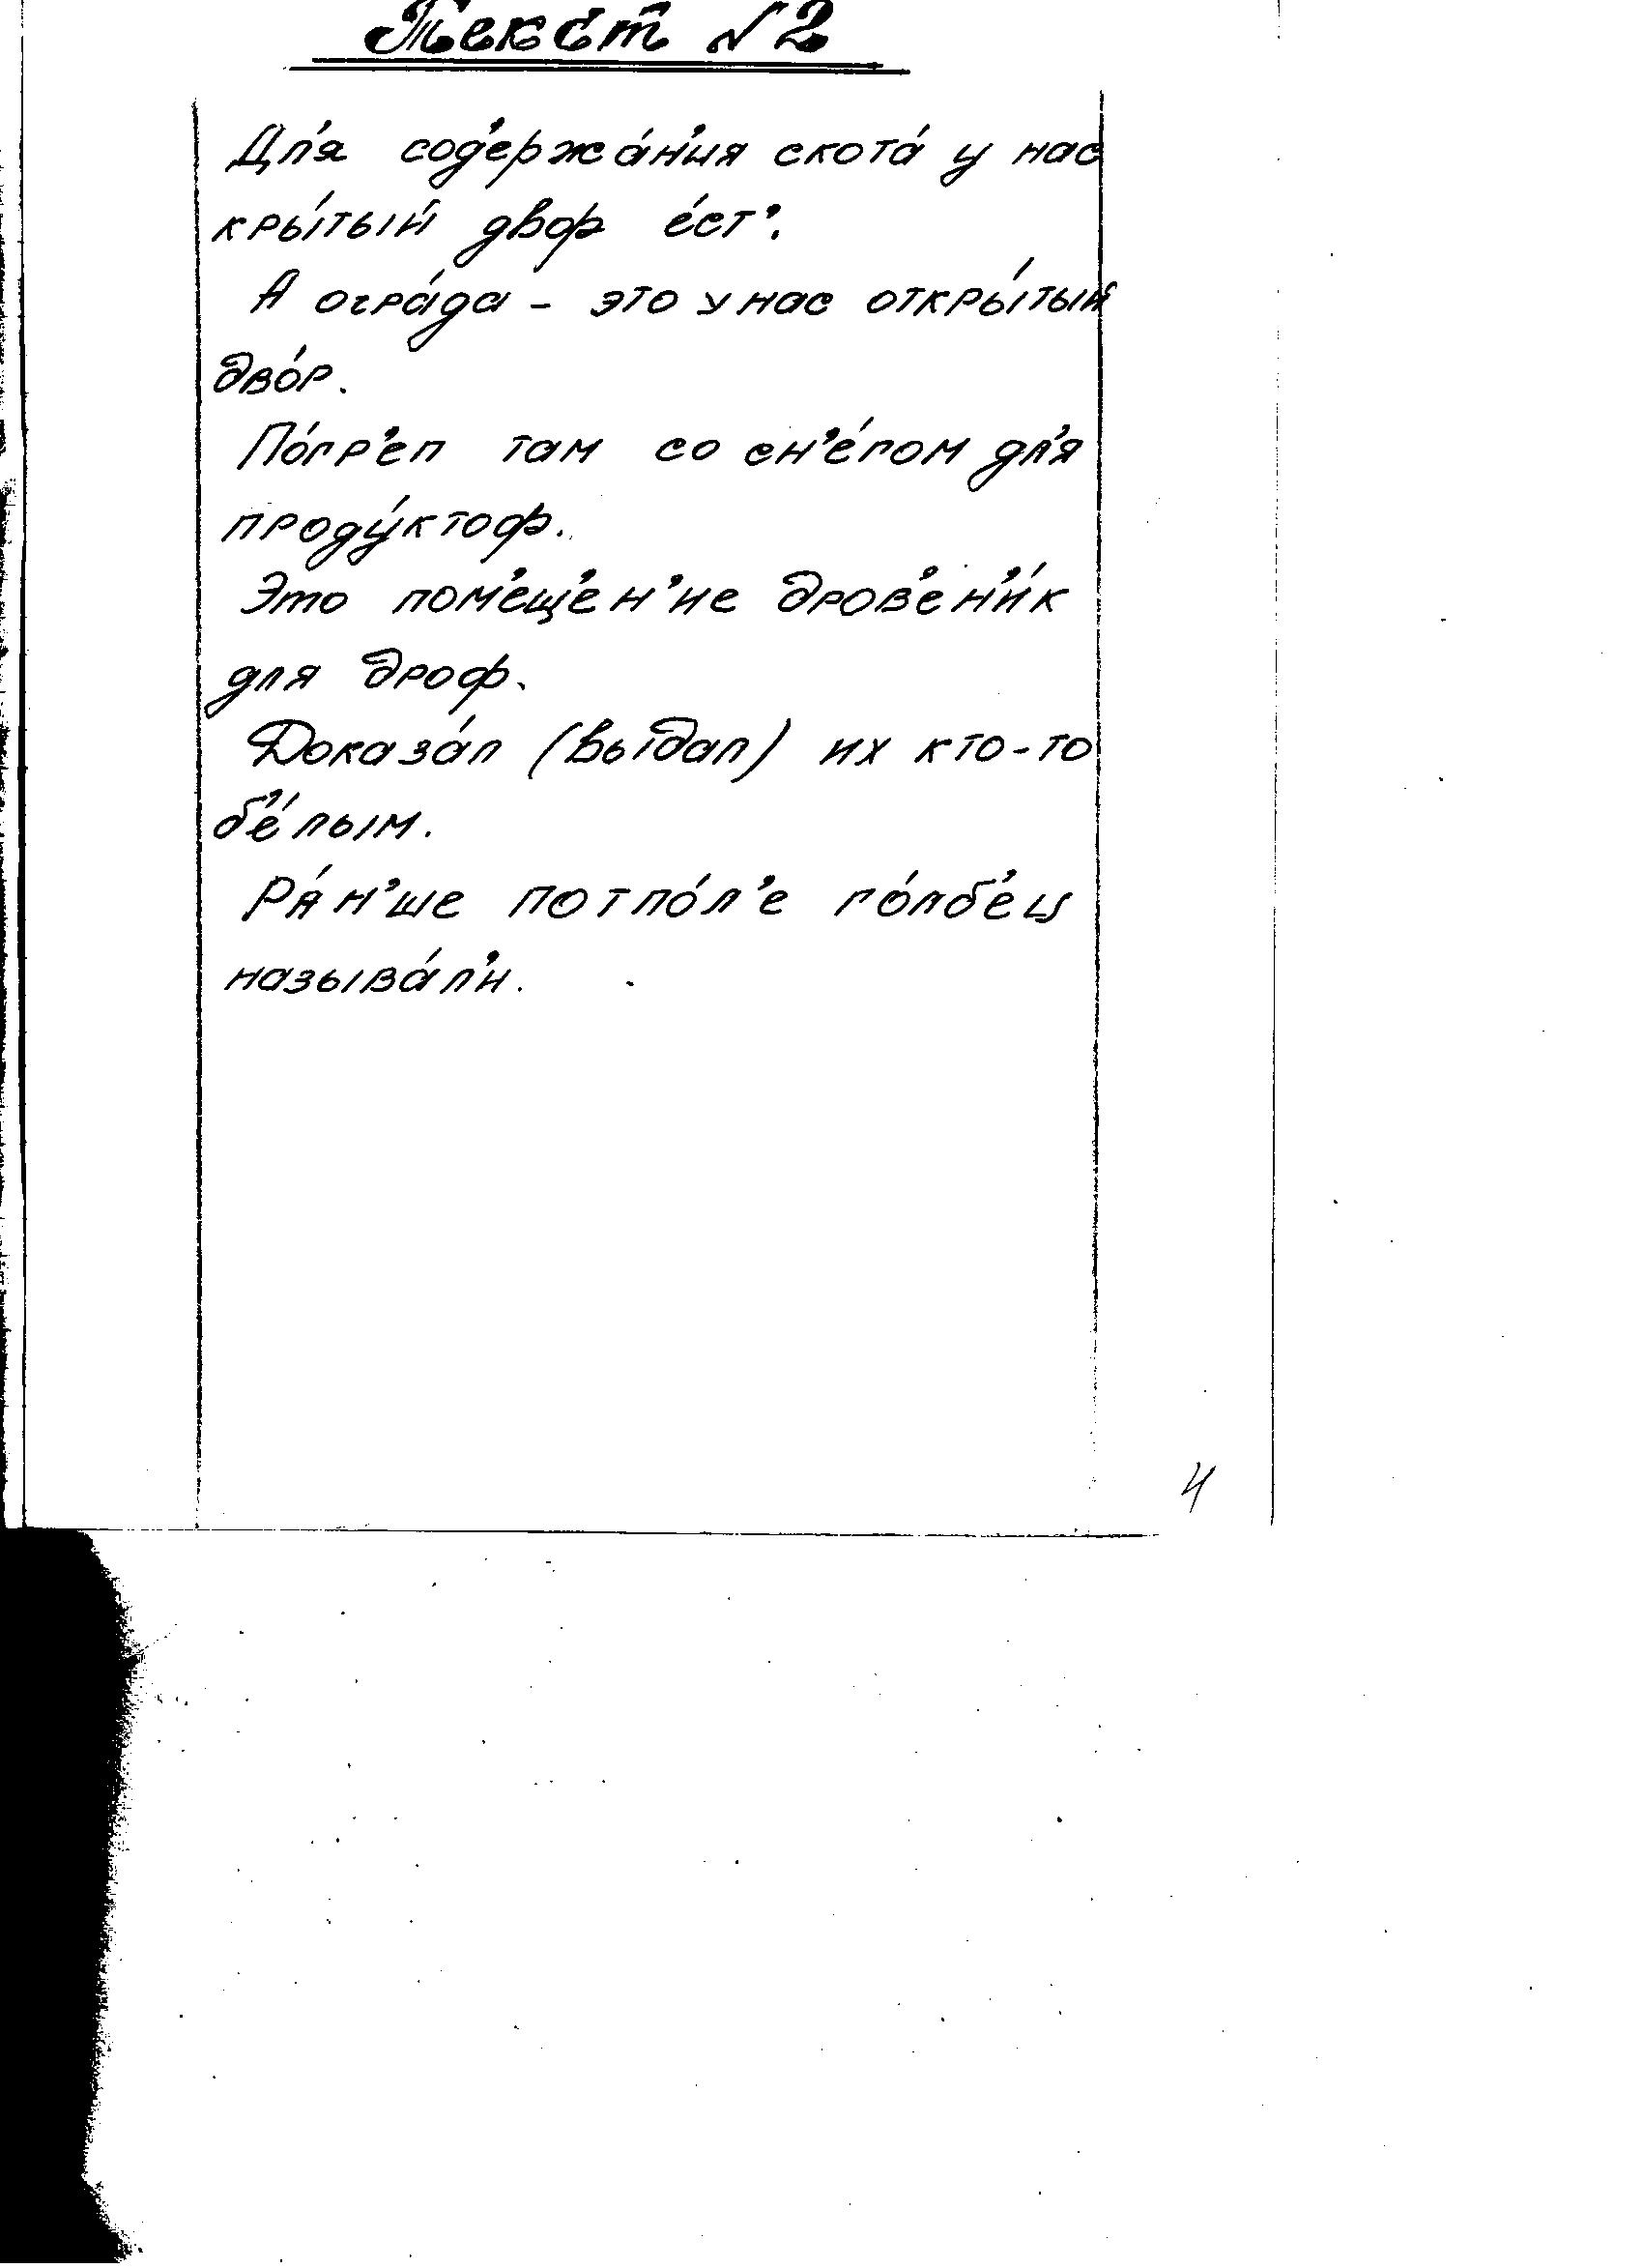 Текст №2
Дл'я сод'ержа́н'ия скота́ у нас
кры́тый двор е́ст'.
А огра́да - это у нас откры́тый
дво́р.
По́гр'еп там со сн'е́гом дл'я
проду́ктоф.
Это пом'ещ'ен'ие дров'ен'и́к
для дроф.
Доказа́л (выдал) их кто-то
б'е́лым.
Ра́н'ше потпо́л'е го́лб'ец
называ́л'и.
4